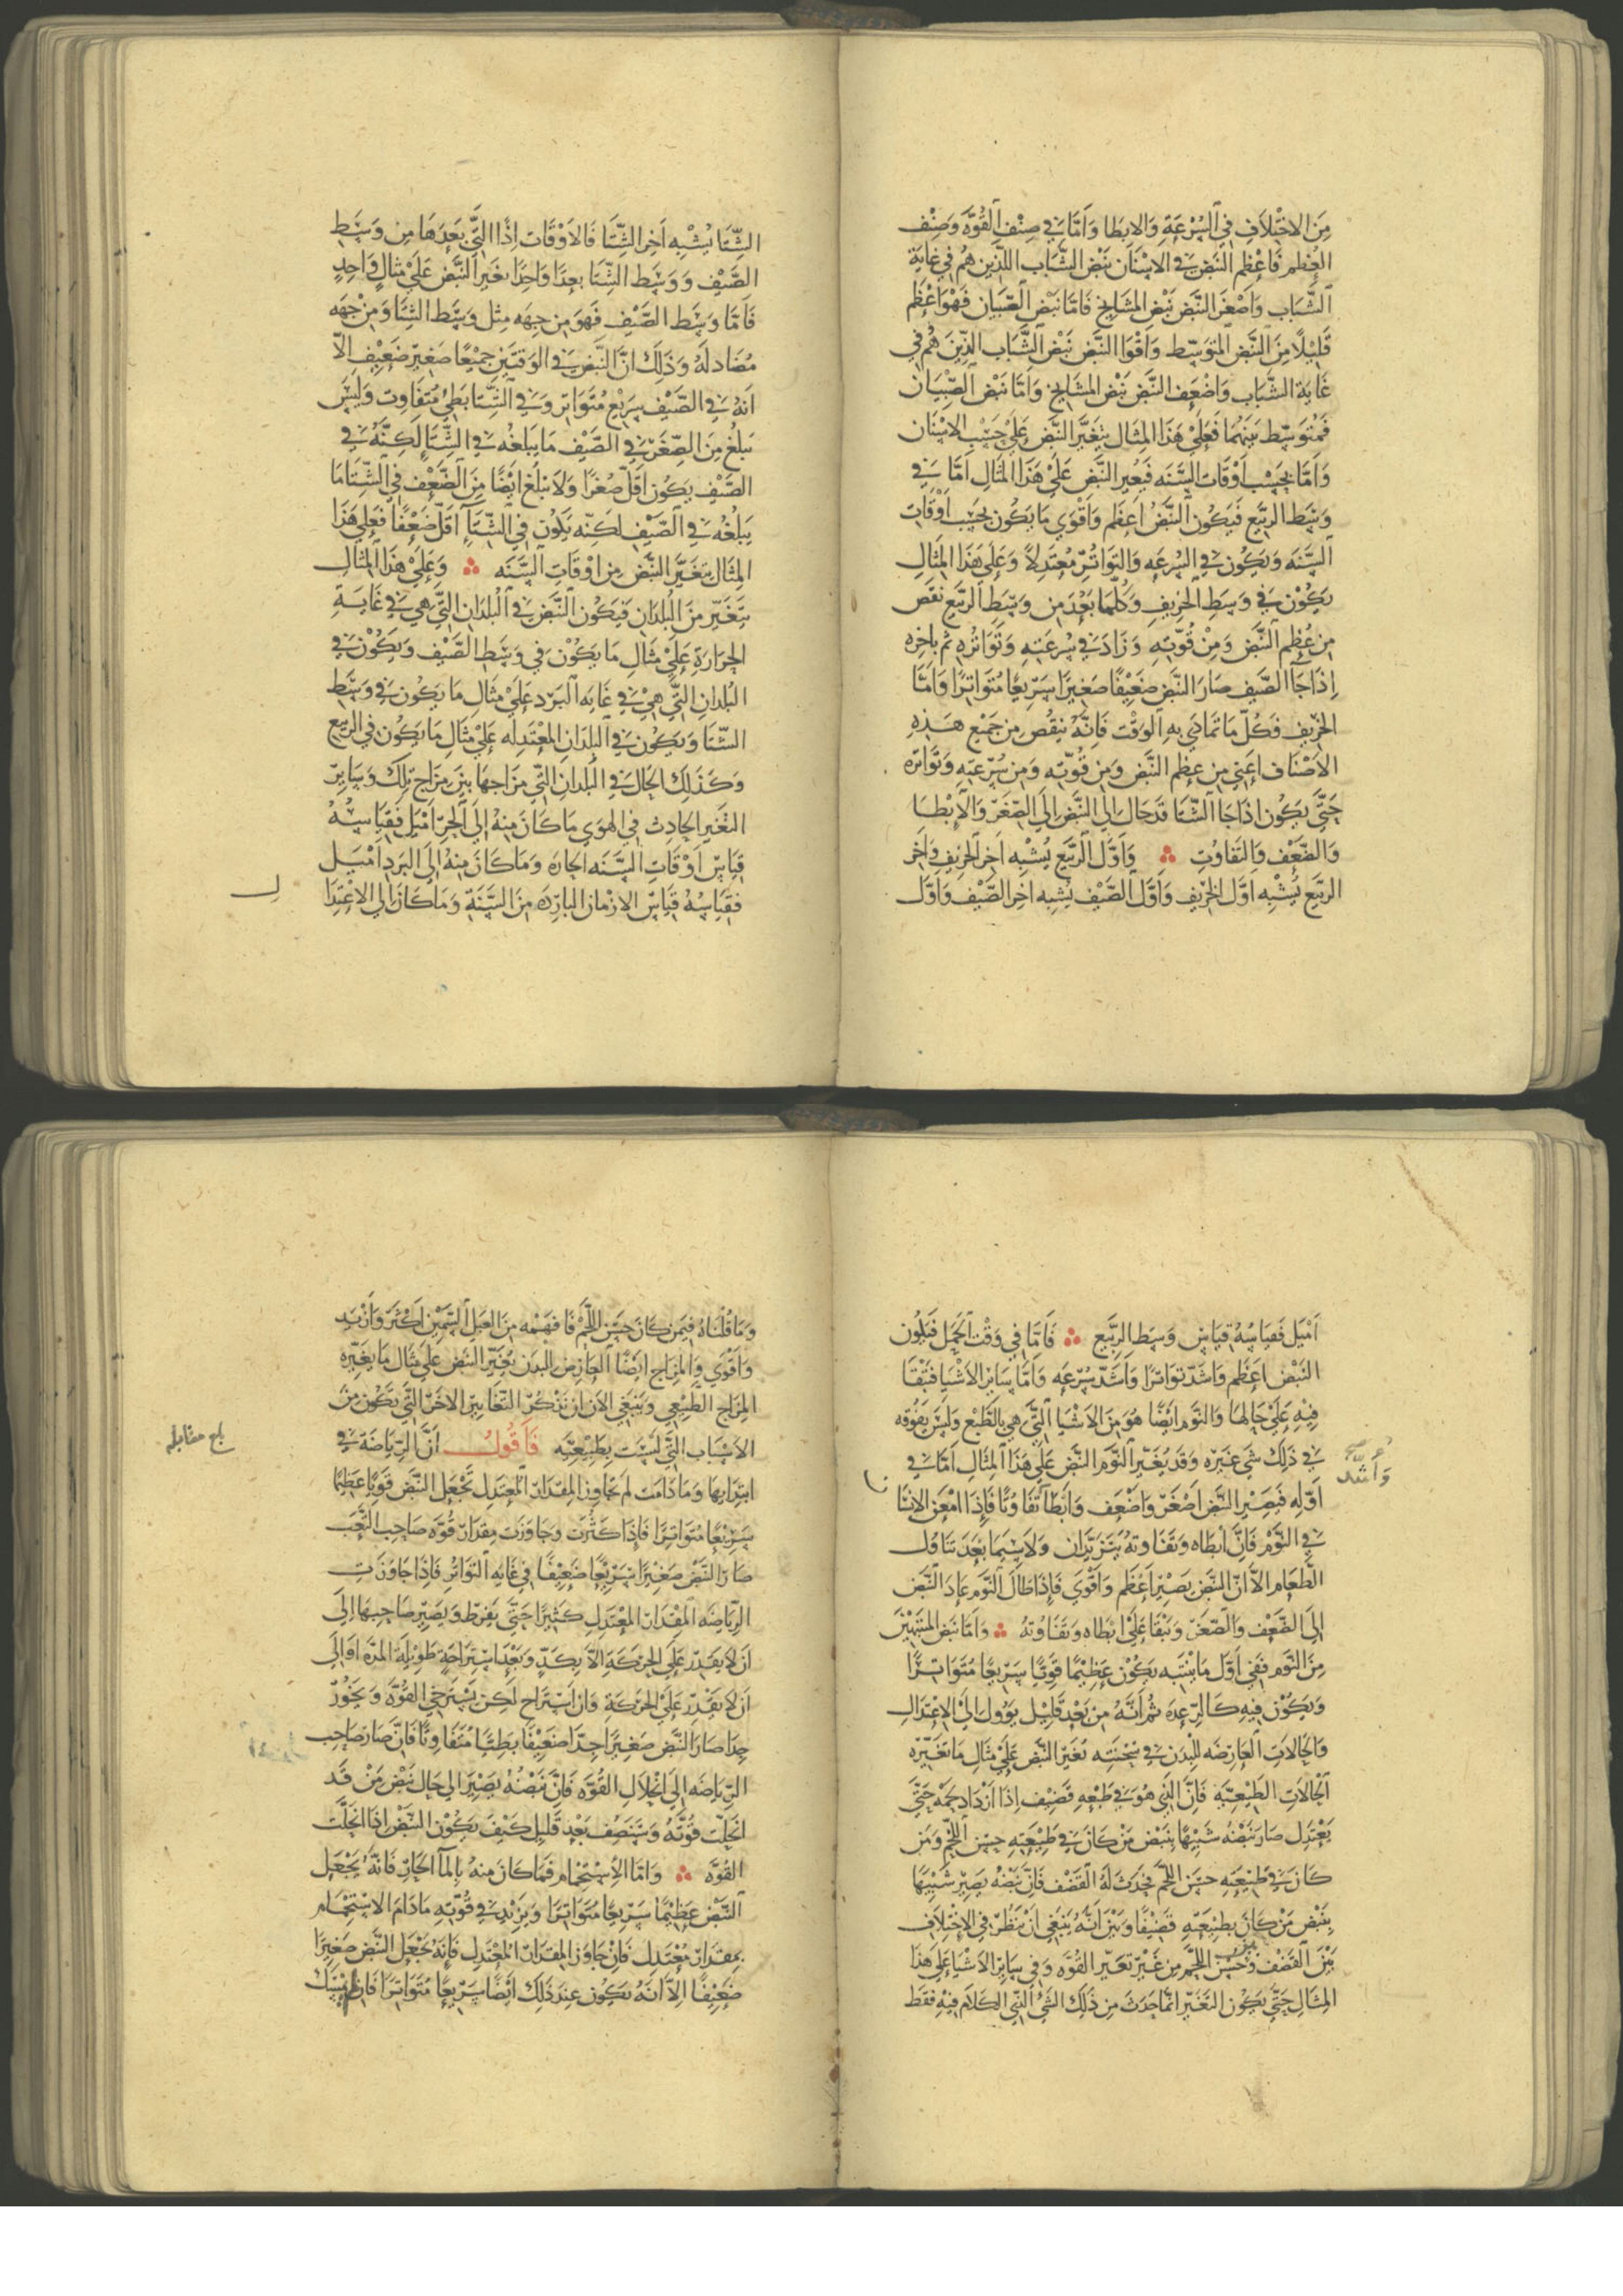 مِنَ الاخْتِلَافِ فِي السُرْعَةِ وَالابِطا وَاَمَّا فِي صِنْفِ القُوَّه وَصِنْف
العِظم فَاعْظم النَبض فِي الاسْنَان نَبْض الشَّبَاب اللذين هُم فِي غَايَة
الشَّبَاب وَاَصْغَر النَّبَض نَبْض المشَايخ فَامَّا نَبْض الصّبيَان فَهْوَ اعْظَم
قَلِيْلًا مِنَ النَّبَض المتوَسّط وَاَقْوَا النَّبَض نَبْض الشَّبَاب الذِّينَ هُم فِي
غَايَة الشَّبَاب وَاضْعَف النَّبَض نَبْض المشَايخ وَاَمَّا نَبْض الصِّبْيَان
فَمُتوَسِّط بَينَهُمَا فَعَلَى هَذَا المِثَال يَتَغَيَّر النَّبَض عَلَى حَسَب الاسْنَان
وَاَمَّا بِحَسَب اَوْقَات السَّنَه فَيَغيِر النَّبَض عَلَى هَذَا المثَال اَمَّا فِي
وَسَط الربَيع فَيَكُون النَّبَض اَعظَم وَاَقْوَي مَا يَكُون بحَسَب اَوْقَات
السَّنَه وَيَكُون فِي السُرعَه وَالتوَاتُر مُعتَدِلاً وَعَلَى هَذَا المَثَال
يَكُوْن فِي وَسَط الخَرِيفِ وَكُلّمَا بَعُدَ مِن وَسَطِ الرَّبَيع نَقص
مِن عُظِم النَّبَض وَمِنْ قُوّتِهِ وَزَادَ فِي سُرعَتِهِ وَتَوَاتُرهِ ثم بِاخِرِه
اِذَا جَا الصَّيف صَارَ النَّبَض ضَعَيْفًا صَغيرًا سَرِيعًا مُتَوَاتِرًا وَاَمَّا
الخَرِيف فَكُلّ مَا تَمَادَي بِهِ الوَقْت فَاِنَّهُ يَنقُص مِن جَمْيع هَذِهِ
الاَصْنَاف اَعنِي مِن عِظم النَّبَض وَمِن قُوّتِهِ وَمِن سُرْعَتِهِ وَتَوَاتُره
حَتَّي يَكُون اِذَا جَا الشّتَا قَد حَالَ النَّبَض اِلَي الصِّغَر وَالاِبْطَا
وَالضَّعْف وَالتفَاوُتِ وَاَوَّل الرَّبَيع يُشْبِه اَخِر الخَرِيف وَاَخِر
الرَّبَيع يُشْبِه اوَّل الخَرِيف وَاَوَّل الصَّيْف يُشِبه اخِر الصَّيْف وَاَوَّل
الشِّتَا يُشْبِه اَخِر الشِّتَا فَالاَوْقَات اِذًا التَّي بَعدَهَا مِن وَسَط
الصَّيْفِ وَوَسَط الشِّتَا بعدًا وَاحِدًا تغَير النَّبَض عَلَيْ مثَالٍ وَاحِدٍ
فَاَمَّا وَسَط الصَّيْفِ فَهوَ مِن جِهَه مِثل وَسَط الشتَا وَمِنْ جِهَه
مُضَاد لَهُ وَذَلِكَ انَّ النَّبض فِي الوَقتَيَن جَمِيْعًا صَغِيرٌ ضَعِيْفٌ اِلَّا
اَنهُ فِي الصَّيْف سِرَيْع مُتَوَاتِر وَفِي الشِّتَا بَطِي مُتفَاوِت وَلَيْسَ
يَبلغُ مِنَ الصِّغَر فِي الصَّيْف مَا يَبلغُه فِي الشِّتَا لَكِنَّهُ فِي
الصَّيْفِ يَكُون اَقَلّ صُغرًا وَلَا يَبْلَغ اَيْضًا مِنَ الضَّعْف فِي الشِّتَا مَا
يَبلُغُه فِي الصَّيْفِ لَكِنّه يَكُون فِي الشِّتَا اَقَلّ ضَعْفًا فَعَلِي هَذَا
المِثَال يَتغَيَّر النَّبَض مِن اوْقَاتِ السَّنَه وَعَلَيْ هَذَا المثَالِ
يَتَغَيّر مِنَ البُلدَان فَيَكُون النَّبَض فِي البُلدَانِ التَّي هِي فِي غَايَةِ
الحَرَارَةِ عَلَى مَثَالِ مَا يَكُوْن فِي وَسَط الصَّيْف وَيَكُوْن فِي
البُلدَانِ التَّي هِيْ فِي غَايَه البَرْد عَلَيْ مثَالِ مَا يَكُون فِي وَسَط
الشّتَا وَيَكُون فِي البلدَان المُعْتَدِله عَلَيْ مثَالِ مَا يَكُون فِي الرَبيع
وَكَذَلِكَ الحَال فِي البُلدَانِ التّي مزَاجهَا بينَ مِزَاج تِلكَ وَسَايِر
التغَير الحَادِث فِي الهوَي مَا كَانَ مِنهُ اِلَي الحَرّ اَمْيَل فَقيَاسُهُ
قيَاس اَوْقَاتِ السَّنَه الحَارة وَمَا كَانَ مِنهُ اِلَي البَردِ اَمْيَل
فقيَاسُهُ قيَاس الازْمَان البَارِده مِنَ السَّنَةِ وَمَا كَانَ اِلي الاعْتِدَا
لـ
اَمْيَل فَقيَاسُهُ قيَاس وَسَط الرَبَيع فَاَمَّا فِي وَقْت الحَمل فَيكُون
النَبْض اعَظَم وَاشَدّ تواتِرًا وَاَشَدّ سُرْعَه وَاَمَّا سَاير الاشْيَا فَتَبْقَا
فِيْهِ عَلَي حَالِهَا وَالنوَم ايَضًا هُوَ مِنَ الاشْيَا التَّي هِي بالطَّبْع وَلَيسَ يَفُوقه
فِي ذَلِكَ شَي غَيَره وَقَد يُغَيّر النَّوَم النَّبَض عَلَي هَذَا المِثَالِ اَمَّا فِي
وَاَشَدّ
اَوّلِهِ فَيَصِيْر النَّبَض اَصْغَر وَاَضْعَف وَابَطَا تفَاوُتًا فَاِذَا امْعَن الانسَا
ن
فِي النَّوْم فَاِنَّ اِبْطَاه وَتَفَاوتهُ يَتَزيدَان وَلَا سِيّمَا بَعْدَ تنَاوُل
الطَّعَام الاَّ انّ النَّبَض يَصيْر اَعْظَم وَاَقْوَي فَاِذَا طَالَ النَّوَم عَادَ النَّبَض
اِلَي الضَّعْف وَالصّغَر وَيَبْقَا عَلَيْ ابْطَاه وَتَفَاوُته وَاَمَّا نَبَض المنتَبهْينَ
مِنَ النَّوم فَفي اَوَّل مَا يَنْتَبِه يَكُوْن عَظِيْمًا قَوِيًّا سَرَيعًا مُتَوَاتِرًا
وَيَكُوْن فِيهِ كَالرِّعدَه ثُم اَنَّهُ مِنْ بَعْدِ قَلِيْلِ يَوُول اِلَي الاِعْتِدَالِ
وَالحَالَاتِ العَارِضَه للبَدَن فِي سُحْنَتِه تُغَير النَّبَض عَلَي مثَال مَا تَغَيّره
الحَالَاتِ الطَبْيعِيَّةِ فَاِنَّ الذِّي هُوَ فِي طَبْعِهِ قَضِيْف اِذَا ازْدَادَ لحَمُه حَتَّي
يَعْتَدِل صَارَ نَبَضْهُ شَبِيهًا بنَبْض مَنْ كَانَ فِي طَبِيْعَتِهِ حسِن اللَّحْم وَمَن
كَانَ فِي طَبِيْعَتِهِ حسَن اللحْم فَحدَثَ لهُ القَضْف فَاِنَّ نَبْضْهُ يَصِيْر شَبِيْهًا
بِنَبْض مَنْ كَانَ بطبِيْعَتِهِ قَضيْفًا وَبَيّنَ انّهُ يَنبَغِي انْ يَنظُر فِي الاخْتِلاَف
بَيْنَ القَضَف وَحُسْن اللحْم مِن غَيْر تَغَيّر القُوَّه وَفِي سَايِر الاشْيَا عَلَي هَذَا
المثَالِ حَتَّي يَكُوْن التَغَيّر انّمَا حَدَثَ مِن ذَلِكَ الشّيْ الذّي الكَلَام فِيْهِ فَقَط
وَمَا قُلْنَاهُ فِيَمن كَانَ حسَن اللَّحْم فَافهَمْه مِنَ العَبَل السَّمِيْن اَكْثَر وَاَزْيَد
وَاَقْوَي وَالمِزَاج ايَضًا العَارِض للبدَن يُغَيّر النَبض عَلَي مثَال مَا يغَيّره
المزَاج الطَّبْيعِي وَيَنْبَغِي الاَن انْ نَذْكُر التّغَايير الاُخَر التَّي تَكُون مِنَ
الاسْبَاب التَّي لَيْسَت بِطَبِيْعِيَّه فَاَقُول اَنَّ الرِيَاضَة فِي
بلغ مقابلة
ابتِدَايهَا وَمَا دَامَت لَم تجَاوز المقدَار المُعتَدِل تَجْعَل النَّبَض قَوِيًا عَظِيْمًا
سَرِيْعًا مُتوَاترًا فَاِذَا كَثُرَت وَجَاوَزَت مِقدَار قُوّه صَاحِب التَّعَب
صَارَ النَّبْض صَغِيْرًا سَرِيْعًا ضَعِيْفًا فِي غَايَه التوَاتُر فَاِذَا جَاوَزَتِ
الرِّيَاضَه المِقْدَار المُعْتَدِل كَثيْرًا حَتَّي يَفرَط وَيَصيِر صَاحِبهَا اِلَي
اَن لَا يَقدِر عَلَي الحَركَةِ اِلاّ بِكَدٍّ وَبَعْد استِرَاحَةٍ طَوِيْلَة المدَّه اوَ اِلَي
اَن لَا يَقْدِر عَلَيْ الحَركَةِ وَانْ استَرَاحَ لَكِن يَسْترَخِي القُوَّه وَيَخُوْر
جِدًا صَارَ النَّبَض صَغِيرًا جِدًّا ضَعِيْفًا بَطيًا مُتفَاوِتًا فَاِنَّ صَارَ صَاحِب
الرِّيَاضَه اِلَي انْحِلَالِ القُوَّه فَاِنَّ نَبْضْهُ يَصِيْر اِلي حَال نَبْض مَنْ قَد
انحَلّت قُوَّتُهُ وَسَنَصِف بَعْد قَلِيْلٍ كَيْفَ يَكُوْن النَّبْض اِذَا انحَلَّت
القُوَّه وَامَّا الاسْتِحْمَام فَمَا كَانَ مِنهُ بِالمَا الحَارّ فَانَّهُ يَجْعَل
النَّبْض عَظِيْمًا سَرِيْعًا مُتَوَاتِرًا وَيَزِيْد فِي قُوّتِهِ مَا دَامَ الاسْتِحْمَام
بمقدَار مُعْتَدِل فَاِنْ جَاوَزَ المقدَار المُعْتَدِل فَاِنَهُ يَجْعَل النَّبَض صَغيرًا
ضَعِيْفًا اِلاّ اَنهُ يَكُون عندَ ذَلِكَ ايْضًا سَرِيْعًا مُتَوَاتِرًا فَان